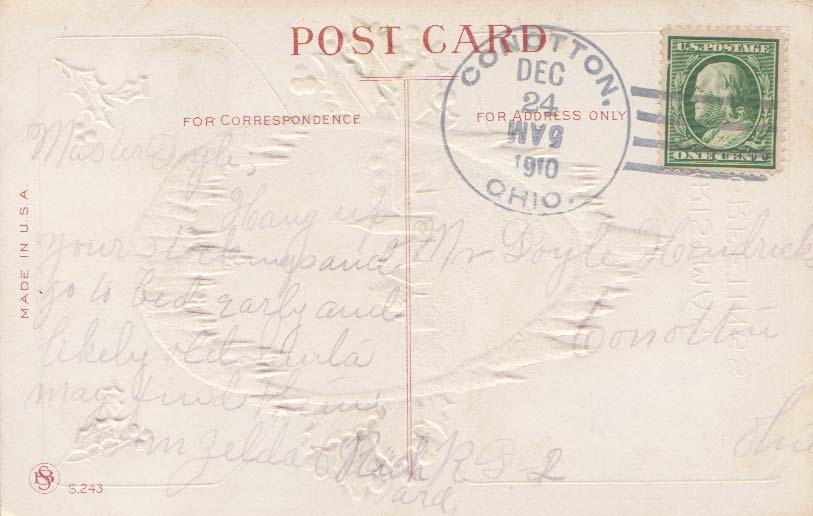 POST CARD
CONOTTON,
DEC
24
5AM
1910
OHIO.
U.S. POSTAGE
ONE CENT
FOR CORRESPONDENCE
FOR ADDRESS ONLY
MADE IN U.S.A.
Master Doyle;
Hang up
your stockings and
go to bed early and
likely old Santa
may find them,
Zelda &
Mr Doyle Hendricks
Conotton
Ohio
R D 2
BSB
S.243